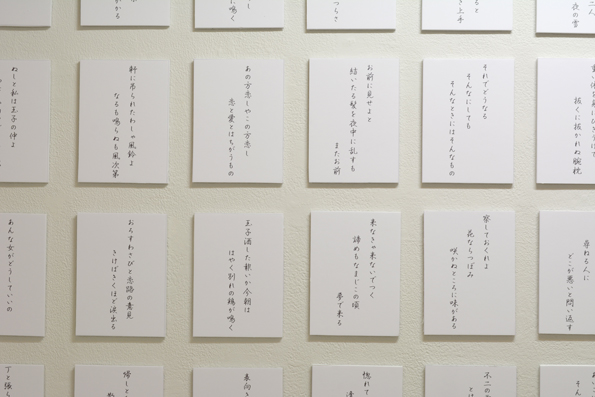 二人
夜の雪
ると
き上手
つらさ
し
に鳴く
かかる
それでどうなる
そんなにしても
そんなときにはそんなもの
お前に見せよと
結いたる髪を夜中に乱する
またお前
あの方恋しやこの方恋し
恋と愛とはちがうもの
軒に吊られたわしゃ風鈴よ
なるも鳴らぬも風次第
ぬしと私は玉子の仲よ
抜くに抜かれぬ腕枕
尋ねる人に
どこが悪いと問い返す
察しておくれよ
花ならつぼみ
咲かねところに味がある
来なきゃ来ないでつく
諦めもなまじこの頃
夢で来る
玉子酒した報いか今朝は
はやく別れの鶏が鳴く
おろすわさびと恋路の意見
きけばきくほど涙出る
あんな女がどうしていいの
不二の
惚れて
表向き
帰し
丁と張ら